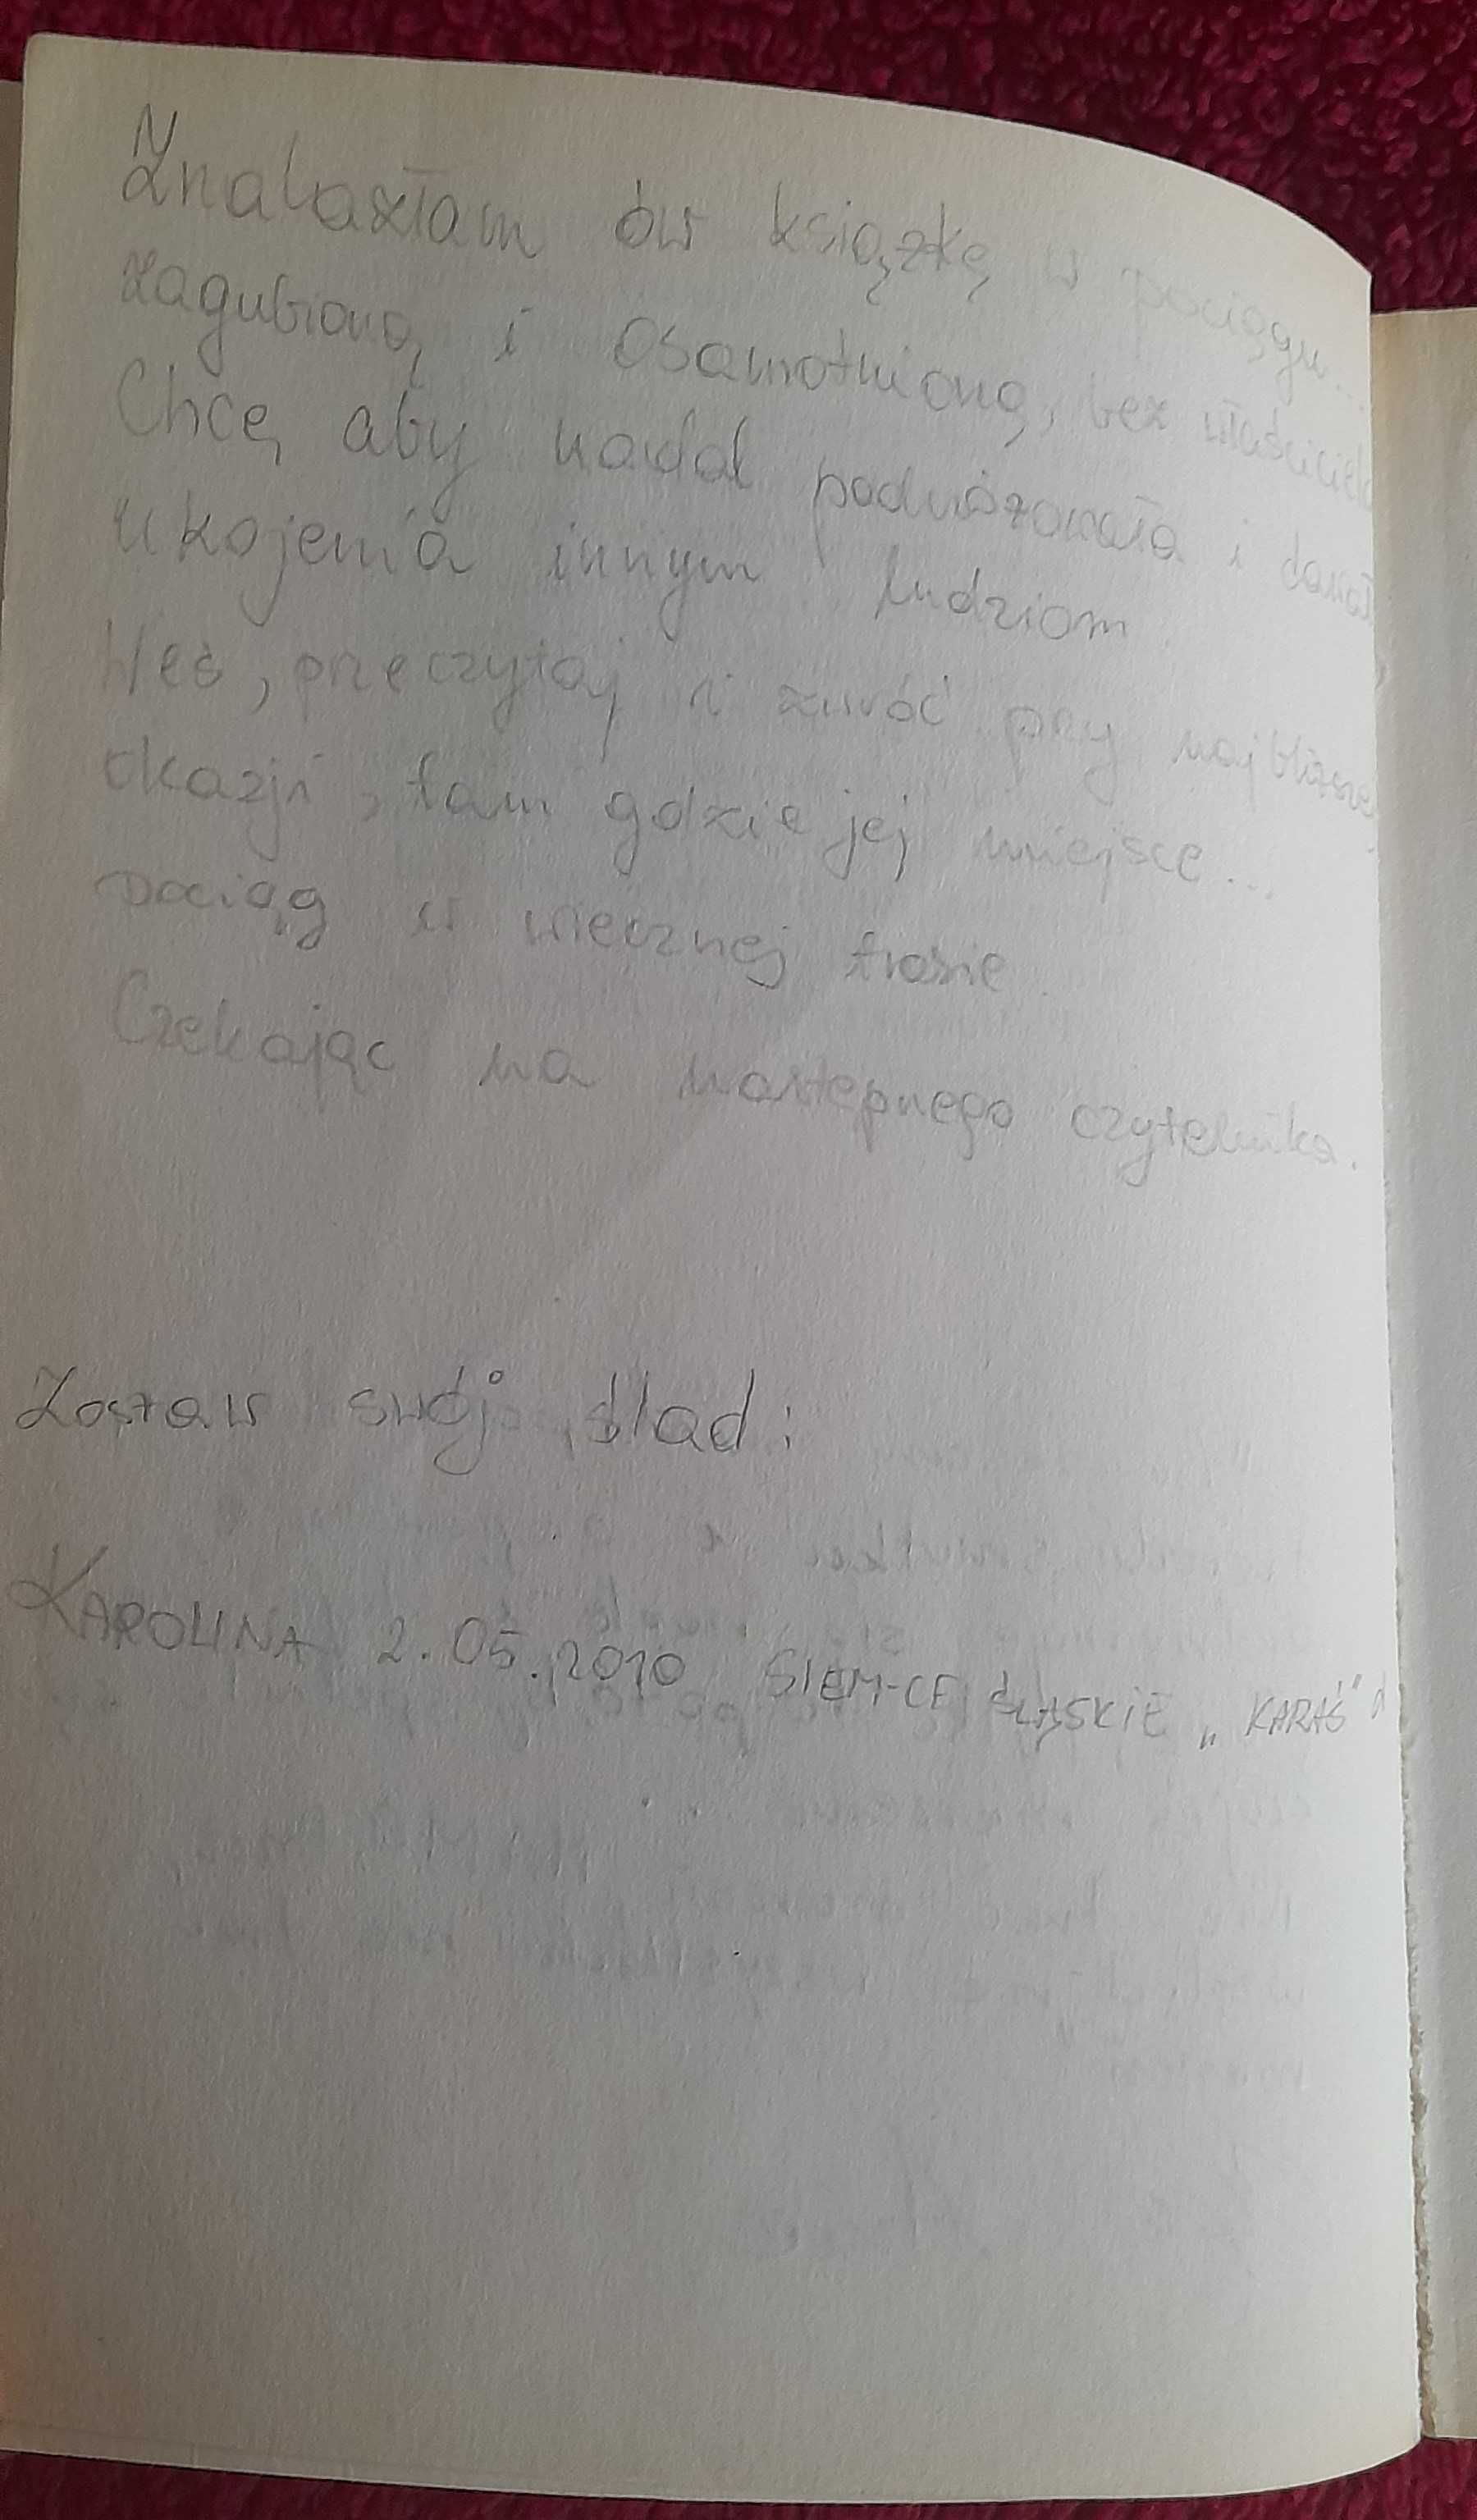 Znalazłam ów książkę w pociągu...
zagubioną i osamotnioną, bez właściciela
Chcę aby nadal podróżowała i dawał
ukojenia innym ludziom.
Weś, przeczytaj i zwróć przy najbliższej
okazji, tam gdzie jej miejsce...
pociąg w wiecznej trasie.
Czekając na następnego czytelnika.
Zostaw swój ślad:
KAROLINA 2.05.2010 SIEM-CE ŚLĄSKIE „KARAŚ"